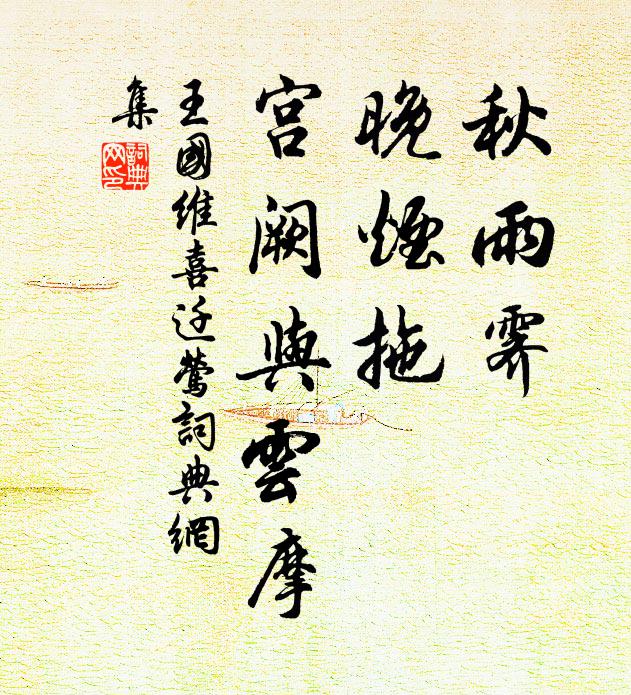 秋雨霽
晚煙拖
宮闕與雲摩
王國維喜迁鶯詞典網
集
詞典
网印